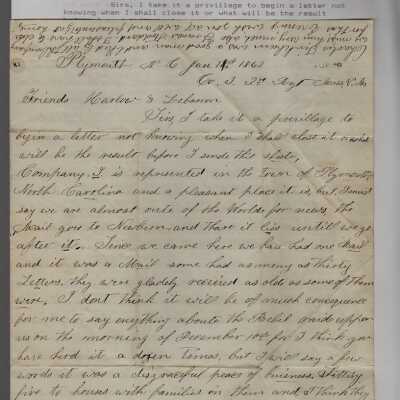 Sirs, I take it a privillage to begin a letter not
knowing when I shall close it or what will be the result
Plymouth N C Jan 1863
Co. I. Regt Mass V. M.
Friends Harlow & Lebanon
Sirs I take it a privillage to
begin a letter not knowing when I shall close it or what
will be the result before I send this sheet,
Company I is represented in the Town of Plymouth
North Carolina and a pleasant place it is, but I must
say we are almost out of the World for news, the
Mail goes to Newbern and thare it lies untill we go
after it. Since we came here we have had one Mail
and it was a Mail some had as many as thirty
Letters. they were gladely received as old as some of them
were, I dont think it will be of much consequence
for me to say enything aboute the Rebel made uppon
us on the morning of December 10th for I think you
have hird it a dozen times, but I will say a few
words it was a disgraceful peace of buisness, setting
fire to houses with families in them and I think they